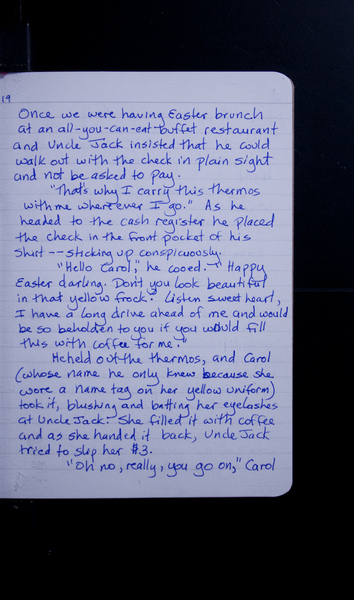 19
Once we were having Easter brunch
at an all-you-can-eat buffet restaurant
and Uncle Jack insisted that he could
walk out with the check in plain sight
and not be asked to pay.
"That's why I carry this thermos
with me wherever I go." As he
headed to the cash register he placed
the check in the front pocket of his
shirt -- sticking up conspicuously.
"Hello Carol," he cooed. "Happy
Easter darling. Don't you look beautiful
in that yellow frock? Listen sweet heart,
I have a long drive ahead of me and would
be so beholden to you if you would fill
this with coffee for me."
He held out the thermos, and Carol
(whose name he only knew because she
wore a name tag on her yellow uniform)
took it, blushing and batting her eyelashes
at Uncle Jack. She filled it with coffee
and as she handed it back, Uncle Jack
tried to slip her $3.
"Oh no, really, you go on," Carol